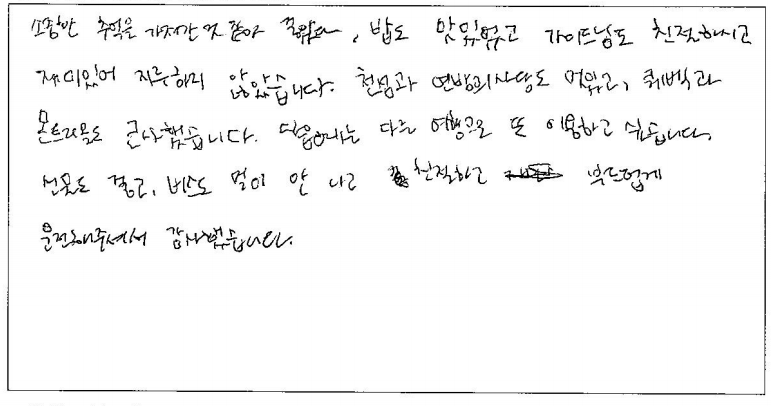 소중한 추억을 가져간 것 같아 좋았고, 밥도 맛있었고 가이드님도 친절하시고
재미있어 지루하지 않았습니다. 천섬과 연방의사당도 멋있고, 퀘벡과
몬트리올도 근사했습니다. 다음에는 다른 여행으로 또 이용하고 싶습니다.
선물도 좋고, 버스도 멀미 안 나고 친절하고 부드럽게
운전해주셔서 감사했습니다.